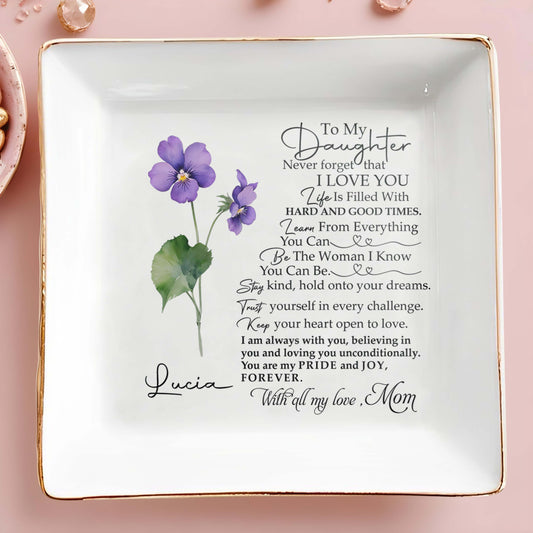 To My
Daughter
Never forget that
I LOVE YOU
Life Is Filled With
HARD AND GOOD TIMES.
Learn From Everything
You Can
Be The Woman I Know
You Can Be.
Stay kind, hold onto your dreams.
Trust yourself in every challenge.
Keep your heart open to love.
I am always with you, believing in
you and loving you unconditionally.
You are my PRIDE and JOY,
FOREVER.
With all my love , Mom
Lucia